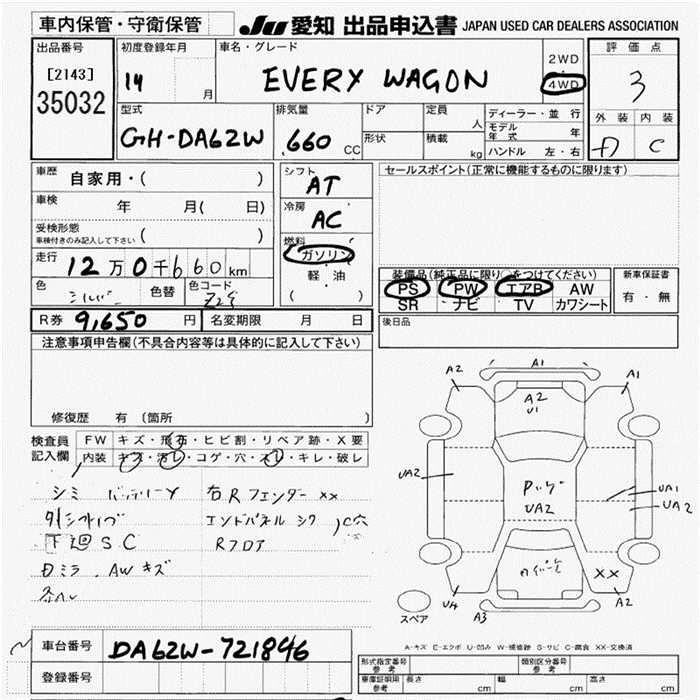 車内保管・守衛保管
JU 愛知 出品申込書 JAPAN USED CAR DEALERS ASSOCIATION
出品番号 初度登録年月 車名・グレード 2WD 評価点
[2143] 14 月 EVERY WAGON 4WD 3
35032
型式 排気量 ドア 定員 人 ディーラー・並行 外装 内装
GH-DA62W .660 CC 形状 積載 kg モデル年式 年 C
ハンドル 左・右
車歴 自家用・( ) シフト AT セールスポイント(正常に機能するものに限ります)
車検 年 月( 日) 冷房 AC
受検形態 車検付きのみ記入して下さい ( ) 燃料 ガソリン
走行 12万0千660km 軽・油 装備品(純正品に限り○をつけてください) 新車保証書
色 シルバー 色替 色コード ( ) PS PW エアB AW 有・無
SR ナビ TV カワシート
R券 9,650 円 名変期限 月 日 後日品
注意事項申告欄(不具合内容等は具体的に記入して下さい)
修復歴 有 〔箇所 〕
検査員記入欄 FW キズ・飛石・ヒビ割・リペア跡・X要
内装 キズ・汚レ・コゲ・穴・スレ・キレ・破レ
シミ 右Rフェンダー XX
エンドパネル
下廻 S.C Rフロア
Dミラ AWキズ
A2 A1 A1
A2
U1
UA2 UA2 UA1
UA2
XX
A3 A2
スペア
A-キズ E-エクボ U-凹み W-補修跡 S-サビ C-腐食 XX-交換済
車台番号 DA62W-721846
登録番号
形式指定番号 参考 類別区分番号 参考
車庫証明用 参考 長さ cm 幅 cm 高さ cm